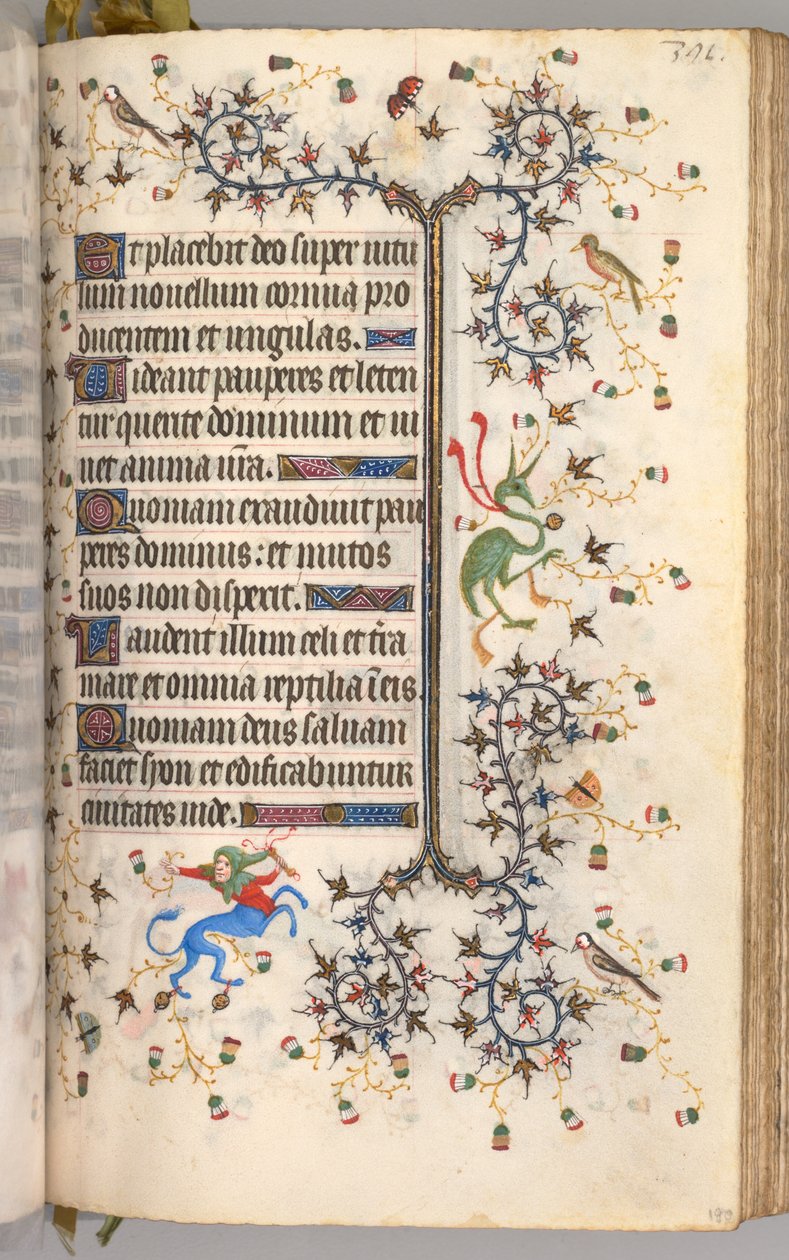 396.
Et placebit deo super uitu
lum nouellum cornua pro
ducentem et ungulas.
Uideant pauperes et leten
tur querite dominum et ui
uet anima ur̄a.
Quoniam exaudiuit pau
peres dominus: et uinctos
suos non disperit.
Laudent illum celi et tr̄a
mare et omnia reptilia ī eis.
Quoniam deus saluam
faciet syon et edificabuntur
ciuitates iude.